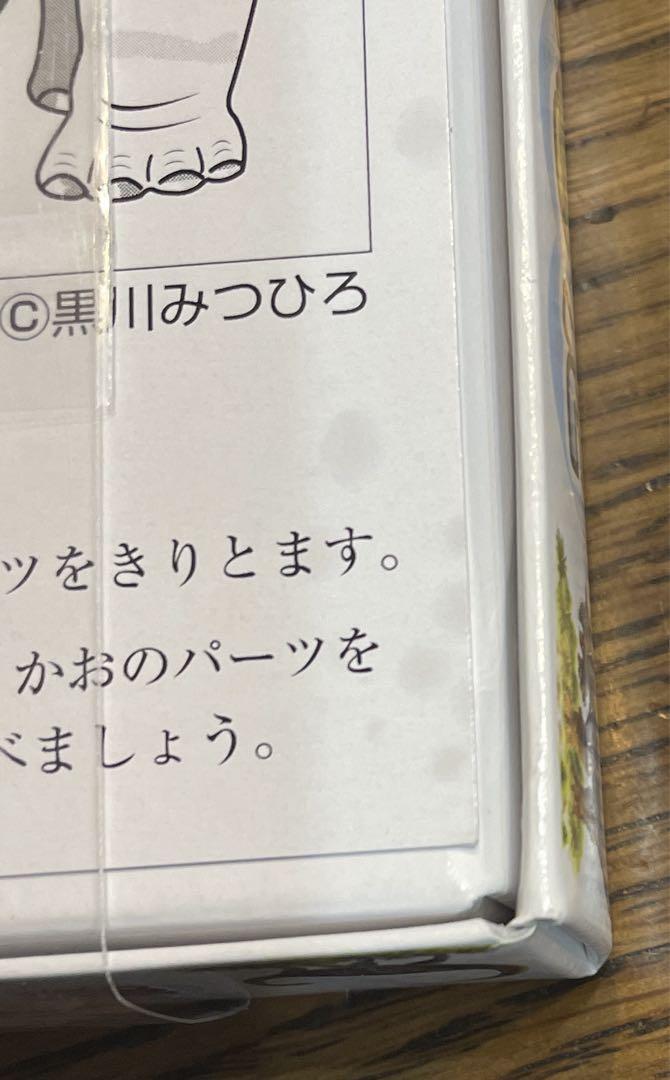 ©黒川みつひろ
ツをきりとます。
かおのパーツを
べましょう。